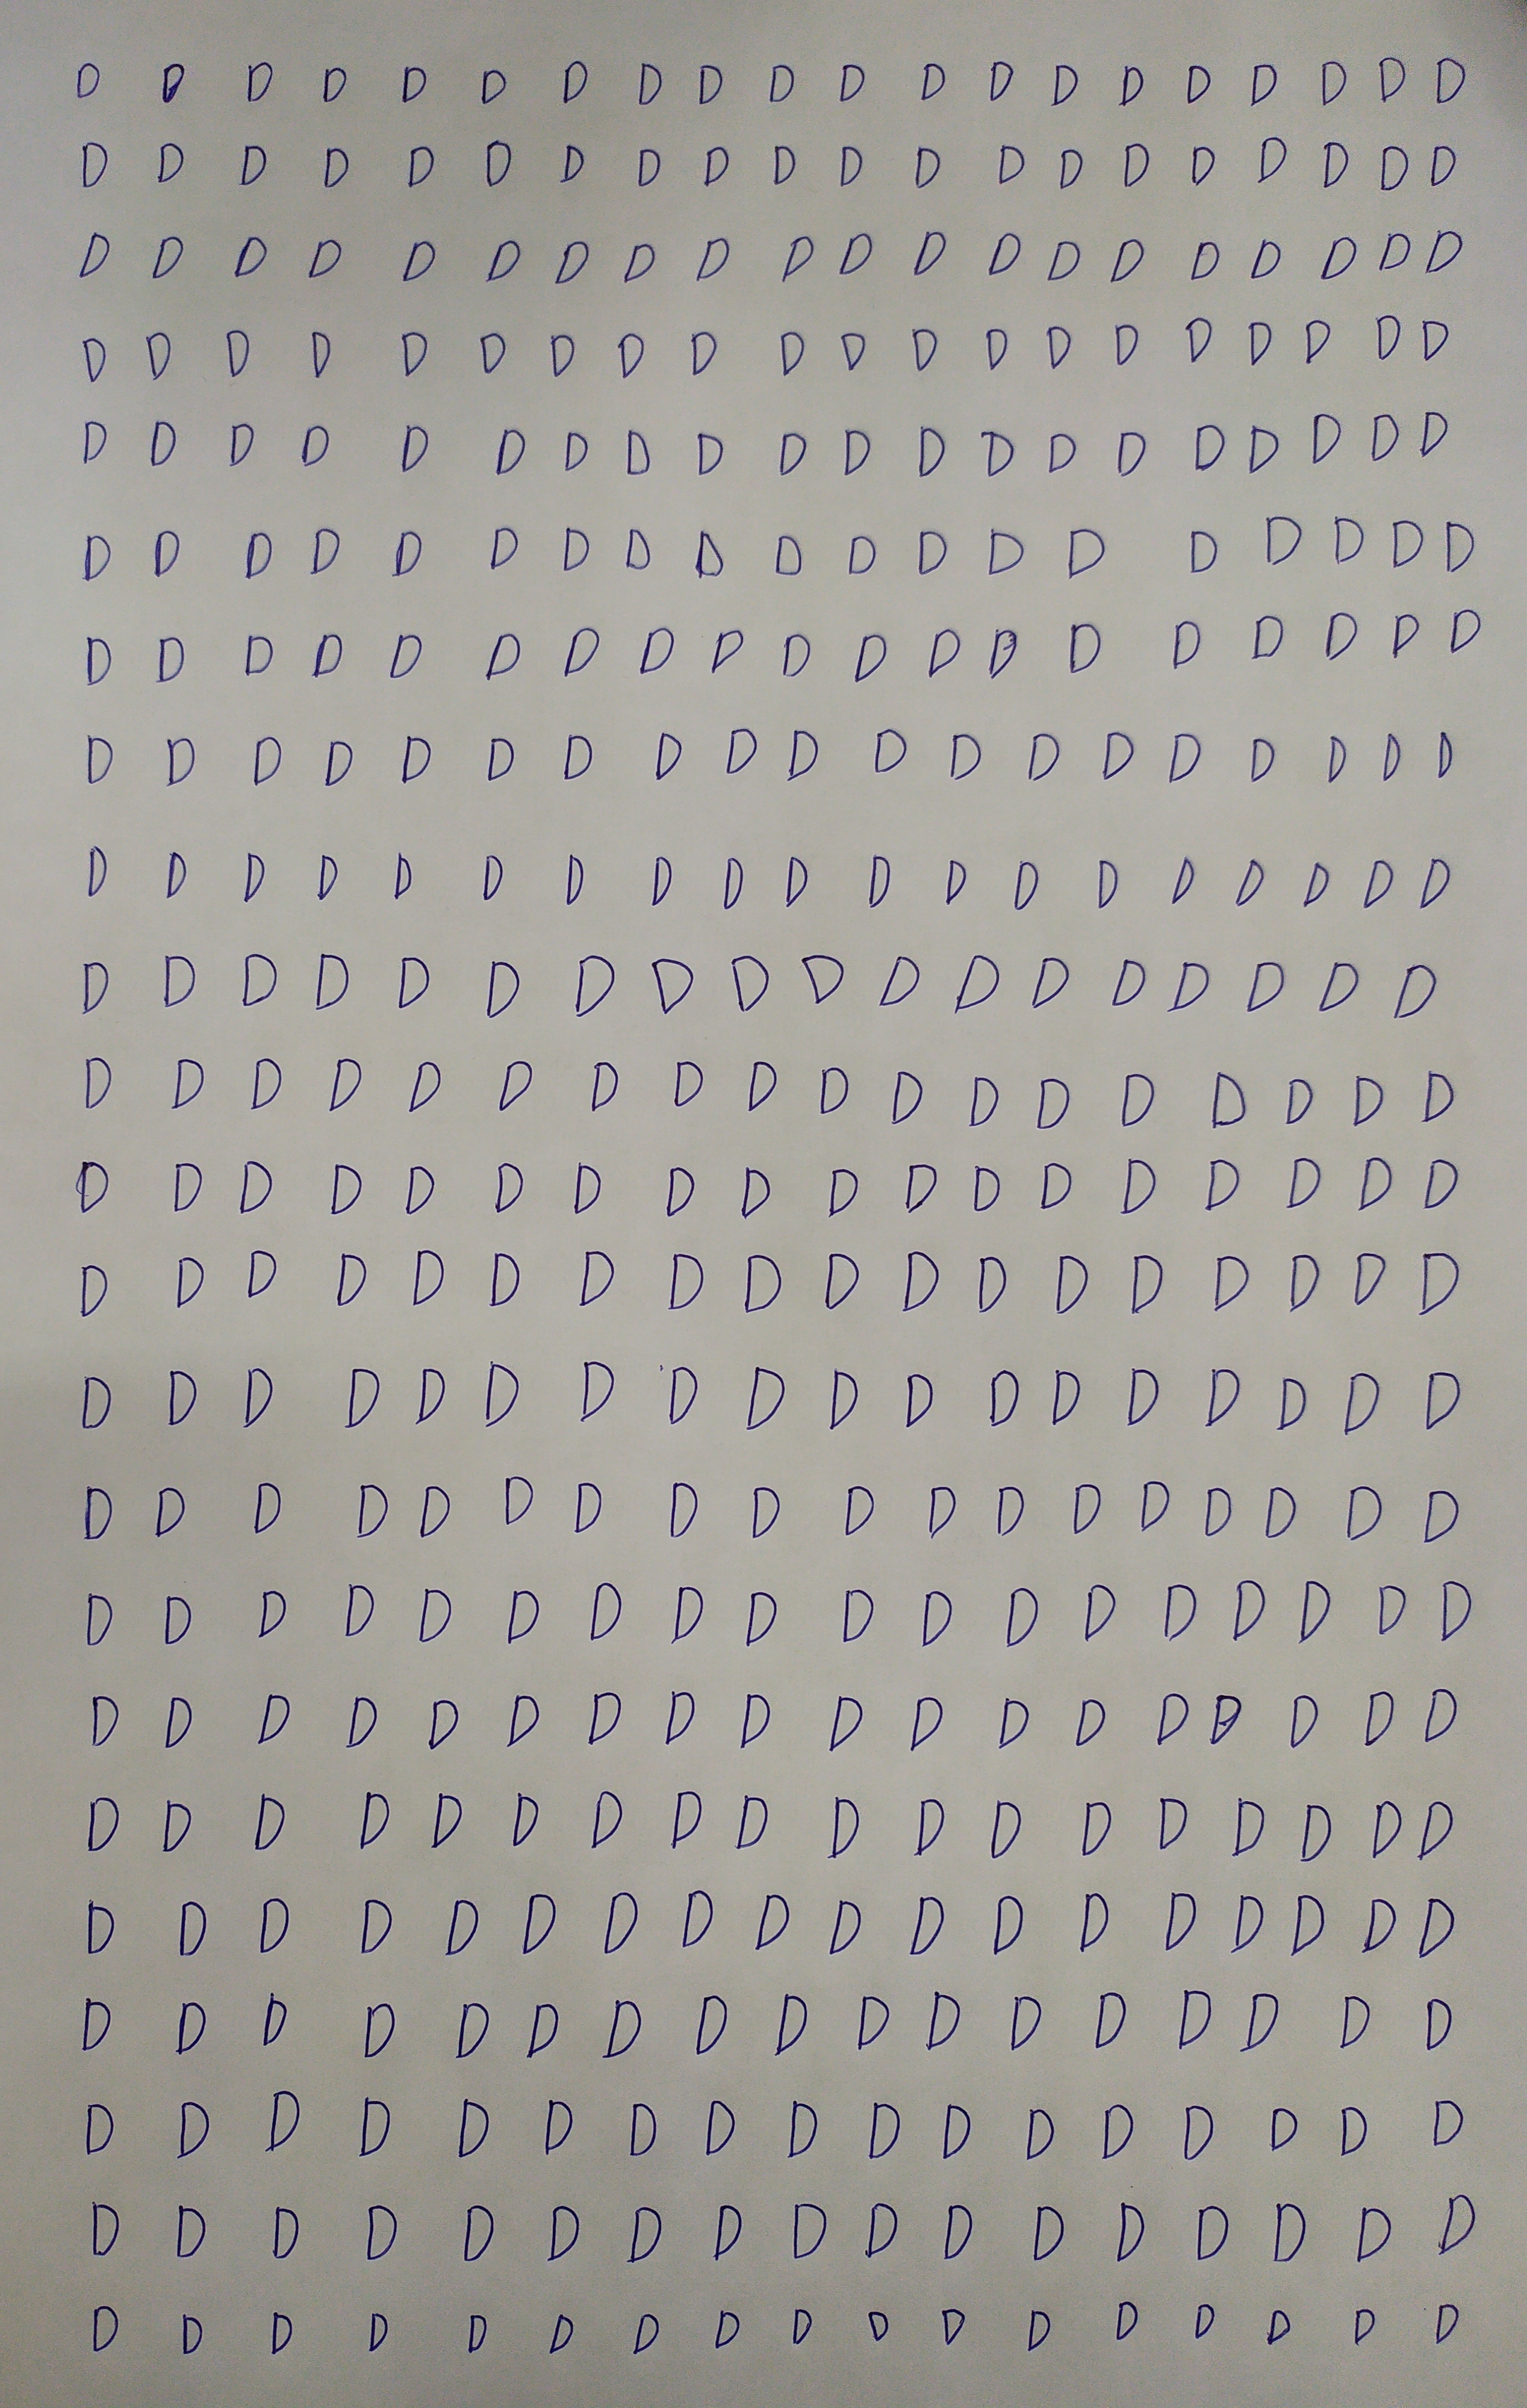 D D D D D D D D D D D D D D D D D D D D
D D D D D D D D D D D D D D D D D D D D
D D D D D D D D D D D D D D D D D D D D
D D D D D D D D D D D D D D D D D D D D
D D D D D D D D D D D D D D D D D D D D
D D D D D D D D D D D D D D D D D D D
D D D D D D D D D D D D D D D D D D D
D D D D D D D D D D D D D D D D D D D
D D D D D D D D D D D D D D D D D D D
D D D D D D D D D D D D D D D D D D
D D D D D D D D D D D D D D D D D D
D D D D D D D D D D D D D D D D D D
D D D D D D D D D D D D D D D D D D
D D D D D D D D D D D D D D D D D D
D D D D D D D D D D D D D D D D D D
D D D D D D D D D D D D D D D D D D
D D D D D D D D D D D D D D D D D D
D D D D D D D D D D D D D D D D D D
D D D D D D D D D D D D D D D D D D
D D D D D D D D D D D D D D D D D
D D D D D D D D D D D D D D D D D
D D D D D D D D D D D D D D D D D
D D D D D D D D D D D D D D D D D